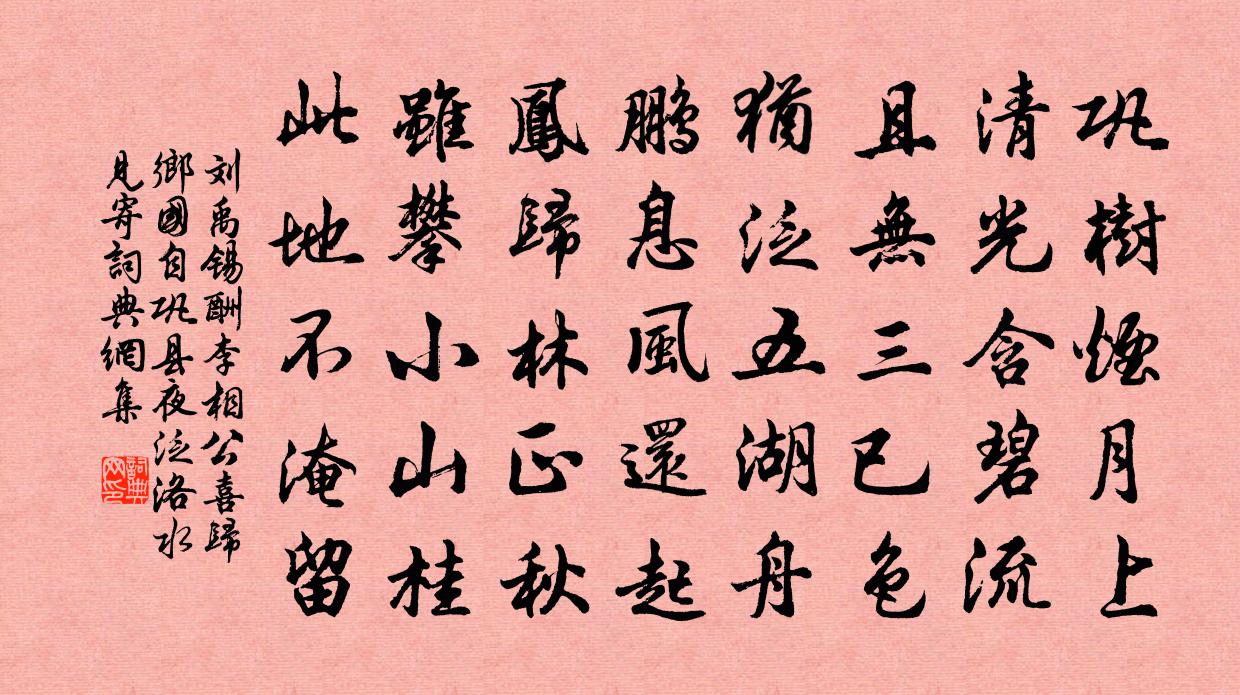 巩樹煙月上
清光含碧流
且無三已色
猶泛五湖舟
鵬息風還起
鳳歸林正秋
雖攀小山桂
此地不淹留
刘禹锡酬李相公喜歸
鄉國自巩县夜泛洛水
見寄詞典網集
詞典
网印